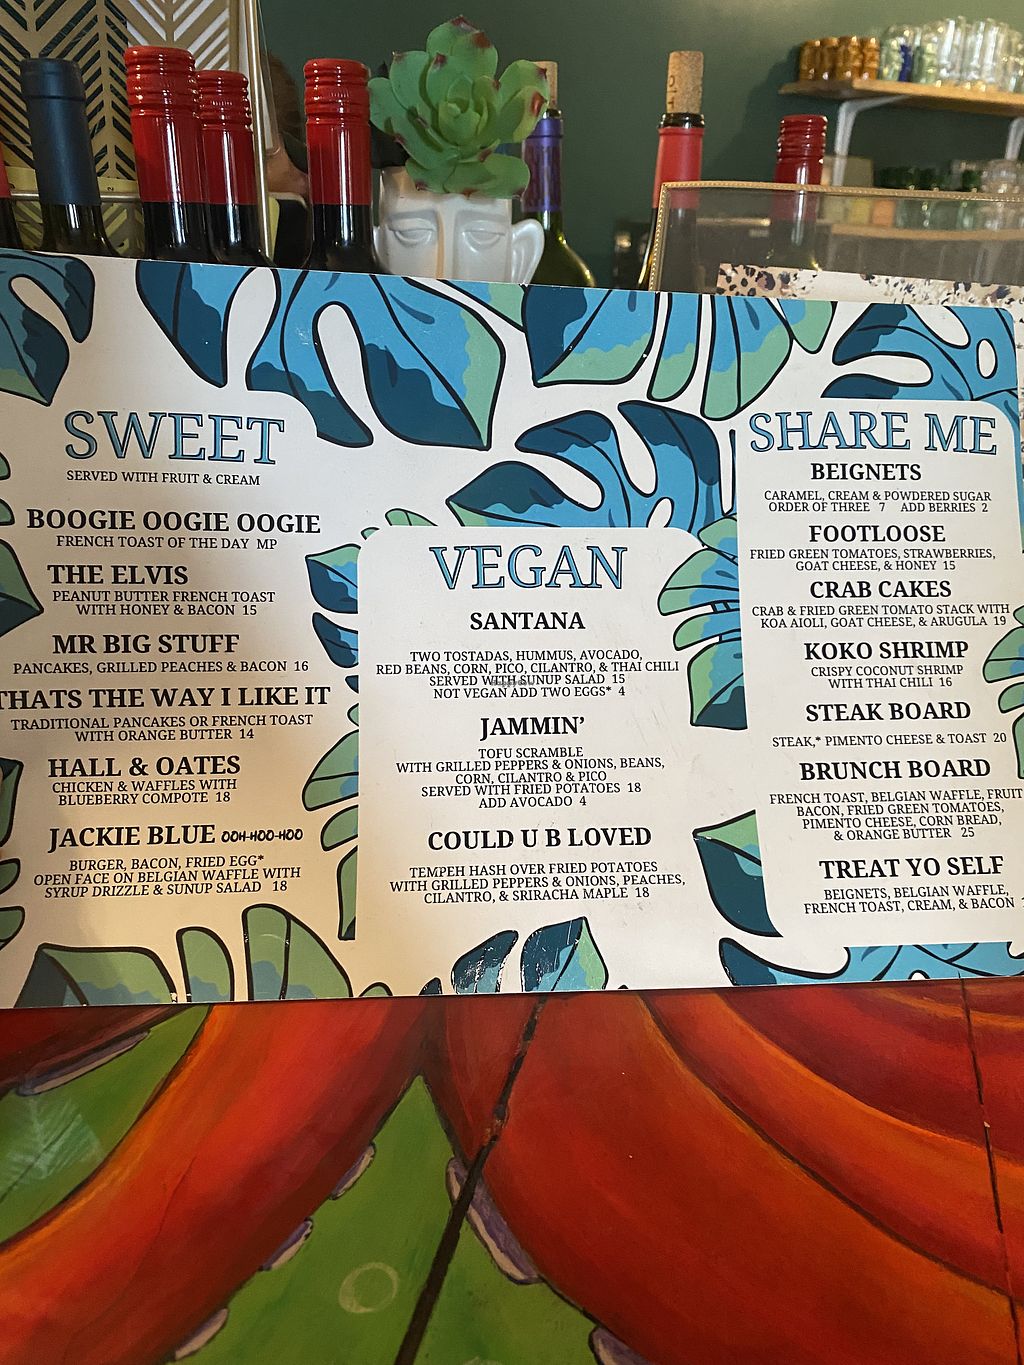 SWEET
SERVED WITH FRUIT & CREAM
BOOGIE OOGIE OOGIE
FRENCH TOAST OF THE DAY MP
THE ELVIS
PEANUT BUTTER FRENCH TOAST
WITH HONEY & BACON 15
MR BIG STUFF
PANCAKES, GRILLED PEACHES & BACON 16
THATS THE WAY I LIKE IT
TRADITIONAL PANCAKES OR FRENCH TOAST
WITH ORANGE BUTTER 14
HALL & OATES
CHICKEN & WAFFLES WITH
BLUEBERRY COMPOTE 18
JACKIE BLUE OOH-HOO-HOO
BURGER, BACON, FRIED EGG*
OPEN FACE ON BELGIAN WAFFLE WITH
SYRUP DRIZZLE & SUNUP SALAD 18
VEGAN
SANTANA
TWO TOSTADAS, HUMMUS, AVOCADO,
RED BEANS, CORN, PICO, CILANTRO, & THAI CHILI
SERVED WITH SUNUP SALAD 15
NOT VEGAN ADD TWO EGGS* 4
JAMMIN'
TOFU SCRAMBLE
WITH GRILLED PEPPERS & ONIONS, BEANS,
CORN, CILANTRO & PICO
SERVED WITH FRIED POTATOES 18
ADD AVOCADO 4
COULD U B LOVED
TEMPEH HASH OVER FRIED POTATOES
WITH GRILLED PEPPERS & ONIONS, PEACHES,
CILANTRO, & SRIRACHA MAPLE 18
SHARE ME
BEIGNETS
CARAMEL, CREAM & POWDERED SUGAR
ORDER OF THREE 7 ADD BERRIES 2
FOOTLOOSE
FRIED GREEN TOMATOES, STRAWBERRIES,
GOAT CHEESE, & HONEY 15
CRAB CAKES
CRAB & FRIED GREEN TOMATO STACK WITH
KOA AIOLI, GOAT CHEESE, & ARUGULA 19
KOKO SHRIMP
CRISPY COCONUT SHRIMP
WITH THAI CHILI 16
STEAK BOARD
STEAK,* PIMENTO CHEESE & TOAST 20
BRUNCH BOARD
FRENCH TOAST, BELGIAN WAFFLE, FRUIT
BACON, FRIED GREEN TOMATOES,
PIMENTO CHEESE, CORN BREAD,
& ORANGE BUTTER 25
TREAT YO SELF
BEIGNETS, BELGIAN WAFFLE,
FRENCH TOAST, CREAM, & BACON